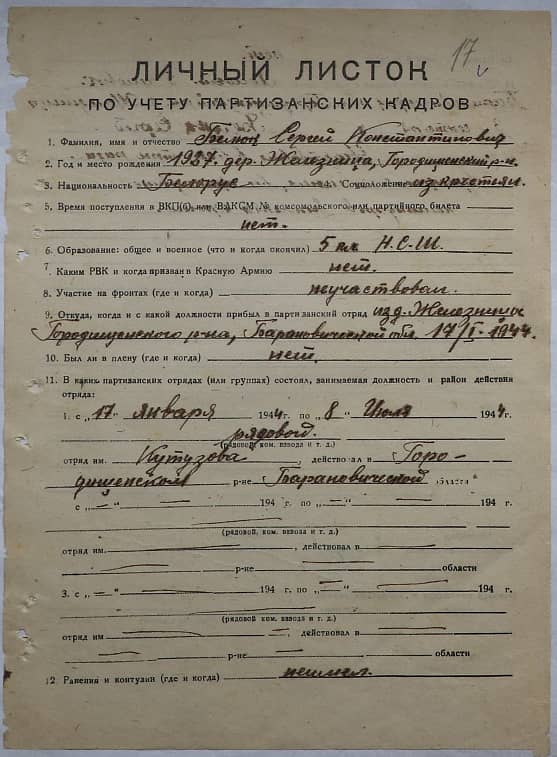 17
ЛИЧНЫЙ ЛИСТОК
ПО УЧЕТУ ПАРТИЗАНСКИХ КАДРОВ
1. Фамилия, имя и отчество Сергей Константинович
2. Год и место рождения 1927 дер. Железница, Городищенский р-н.
3. Национальность Белорус Соцположение из крестьян.
5. Время поступления в ВКП(б) или ВЛКСМ № комсомольского или партийного билета
нет.
6. Образование: общее и военное (что и когда окончил) 5 кл. Н.С.Ш.
7. Каким РВК и когда призван в Красную Армию нет.
8. Участие на фронтах (где и когда) неучаствовал.
9. Откуда, когда и с какой должности прибыл в партизанский отряд из д. Железница
Городищенского р-на, Барановической обл. 17/I-1944.
10. Был ли в плену (где и когда) нет.
11. В каких партизанских отрядах (или группах) состоял, занимаемая должность и район действия
отряда:
1. с „17" января 1944 г. по „8" Июля 1944 г.
рядовой.
(рядовой, ком. взвода и т. д.)
отряд им. Кутузова, действовал в Горо-
дищенском р-не Барановической области
с „—" 194 г. по „—" 194 г.
(рядовой, ком. взвода и т. д.)
отряд им. , действовал в
р-не области
3. с „—" 194 г. по „—" 194 г.
(рядовой, ком. взвода и т. д.)
отряд им. , действовал в
р-не области
12. Ранения и контузии (где и когда) неимел.